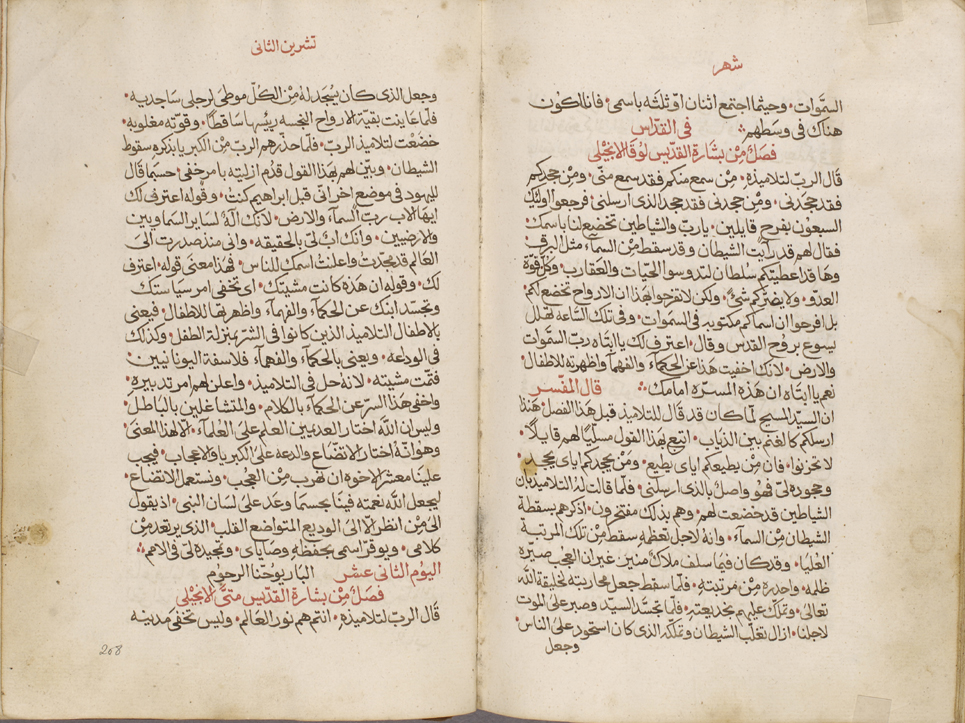 شهر
السموات، وحيثما اجتمع اثنان او ثلثه باسمى، فانا اكون
هناك فى وسطهم في القدّاس
فصل من بشارة القديس لوقا الانجيلى
قال الربّ لتلاميذه، من سمع منكم فقد سمع منّى، ومن جحدكم
فقد جحدنى، ومن جحدنى فقد جحد الذى ارسلنى، فرجعوا اوليك
السبعون بفرح قايلين، يا ربّ والشياطين تخضع لنا باسمك
فقال لهم قد رايت الشيطان وقد سقط من السماء مثل البرق،
وها قد اعطيتكم سلطان لتدوسوا الحيّات والعقارب، وكل قوّة
العدو، ولا يضرّكم شىٌ، ولكن لا تفرحوا بهذا ان الارواح تخضع لكم،
بل افرحوا ان اسماكم مكتوبه فى السموات، وفى تلك الساعة تهلل
يسوع بروح القدس وقال، اعترف لك يا ابتاه ربّ السموات
والارض، لانك اخفيت هذا عن الحكمآء والفهمآ واظهرته للاطفال
نعم يا ابتاه ان هذه المسرّه امامك، قال المفسر
ان السيّد المسيح لما كان قد قال للتلاميذ قبل هذا الفصل هنذا
ارسلكم كالغنم بين الذياب، اتبع بهذا القول مسلّيًا لهم قايلاً،
لا تحزنوا، فان من يطيعكم اياى يطيع، ومن يجحدكم اياى يجحد
وجحوده لى فهو واصل بالذى ارسلنى، فلما قالت له التلاميذ بان
الشياطين قد خضعت لهم، وهم بذلك مفتخرون، اذكرهم بسقطة
الشيطان من السمآء، وانه لاجل تعظمه سقط من تلك المرتبة
العليا، وقد كان فيما سلف ملاك منير، غير ان العجب صيّره
ظلمه، واحدره من مرتبته، فلما سقط جعل محاربته لخليقة الله
تعالى، وتملك عليهم بخديعته، فلما تجسّد السيّد وصبر على الموت
لاجلنا، ازال تغلّب الشيطان وتملكه الذى كان استحوذ على الناس،
وجعل
تشرين الثانى
وجعل الذى كان يُسجَد له من الكلّ موطى لرجلى ساجديه،
فلما عاينت بقيّة الارواح النجسه رييسها ساقطًا، وقوّته مغلوبه،
خضعت لتلاميذ الربّ، فلما حذّرهم الربّ من الكبريا بذكره سقوط
الشيطان، وبيّن لهم بهذا القول قدم ازليته بامر خفى، حسبما قال
لليهود فى موضع اخر انى قبل ابراهيم كنت، وقوله اعترف لك
ايها الاب ربّ السمآء والارض، لانك الهٌ لساير السماويين
والارضيين، وانك ابٌ لى بالحقيقه، وانى منذ صدرت الى
العالم قد مجّدتك واعلنت اسمك للناس، فهذا معنى قوله، اعترف
لك، وقوله ان هذه كانت مشيتك، اى تخفى امر سياستك
وتجسّد ابنك عن الحكمآء والفهمآء، واظهرتها للاطفال، فيعنى
بالاطفال التلاميذ الذين كانوا فى الشر بمنزلة الطفل، وكذلك
فى الودعه، ويعنى بالحكمآء والفهمآء فلاسفة اليونانيين،
فتمّت مشيته، لانه حل فى التلاميذ، واعلن لهم امر تدبيره،
واخفى هذا السرّ عن الحكمآء بالكلام، والمتشاغلين بالباطل،
وليس ان الله اختار العديمين العلم على العلمآء، الا لهذا المعنى،
وهو انهُ اختار الاتضاع والدعه على الكبريا والاعجاب، فيجب
علينا معشر الاخوه ان نهرب من العُجب، ونستعمل الاتضاع،
ليجعل الله نعمته فينا بحسبما وعد على لسان النبى، اذ يقول
الى من انظر الا الى الوديع المتواضع القلب، الذى يرتعد من
كلامى، ويوقّر اسمى بحفظه وصاياى، وتمجيده لى فى الامم،
اليوم الثانى عشر البار يوحنا الرحوم
فصل من بشارة القديس متى الانجيلى
قال الربّ لتلاميذه، انتم هم نور العالم، وليس تخفى مدينه
208